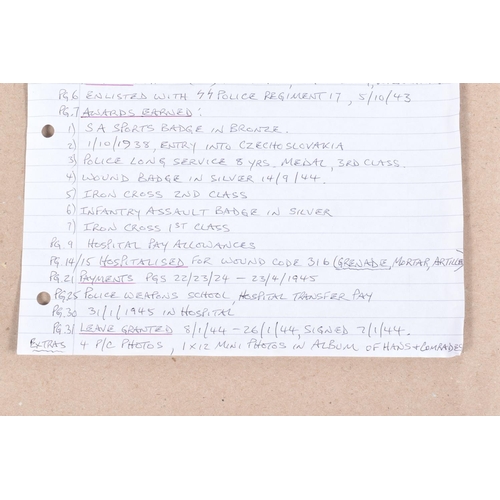 PG.6 ENLISTED WITH SS POLICE REGIMENT 17, 5/10/43
PG.7 AWARDS EARNED:
1) SA SPORTS BADGE IN BRONZE.
2) 1/10/1938, ENTRY INTO CZECHOSLOVAKIA
3) POLICE LONG SERVICE 8 YRS. MEDAL, 3RD CLASS.
4) WOUND BADGE IN SILVER 14/9/44.
5) IRON CROSS 2ND CLASS
6) INFANTRY ASSAULT BADGE IN SILVER
7) IRON CROSS 1ST CLASS
PG.9 HOSPITAL PAY ALLOWANCES
PG.14/15 HOSPITALISED FOR WOUND CODE 31b (GRENADE, MORTAR, ARTILLERY)
PG.21 PAYMENTS PGS 22/23/24 – 23/4/1945
PG.25 POLICE WEAPONS SCHOOL, HOSPITAL TRANSFER PAY
PG.30 31/1/1945 IN HOSPITAL
PG.31 LEAVE GRANTED 8/1/44 – 26/1/44, SIGNED 7/1/44.
EXTRAS 4 P/C PHOTOS, 1X12 MINI PHOTOS IN ALBUM OF HANS + COMRADES